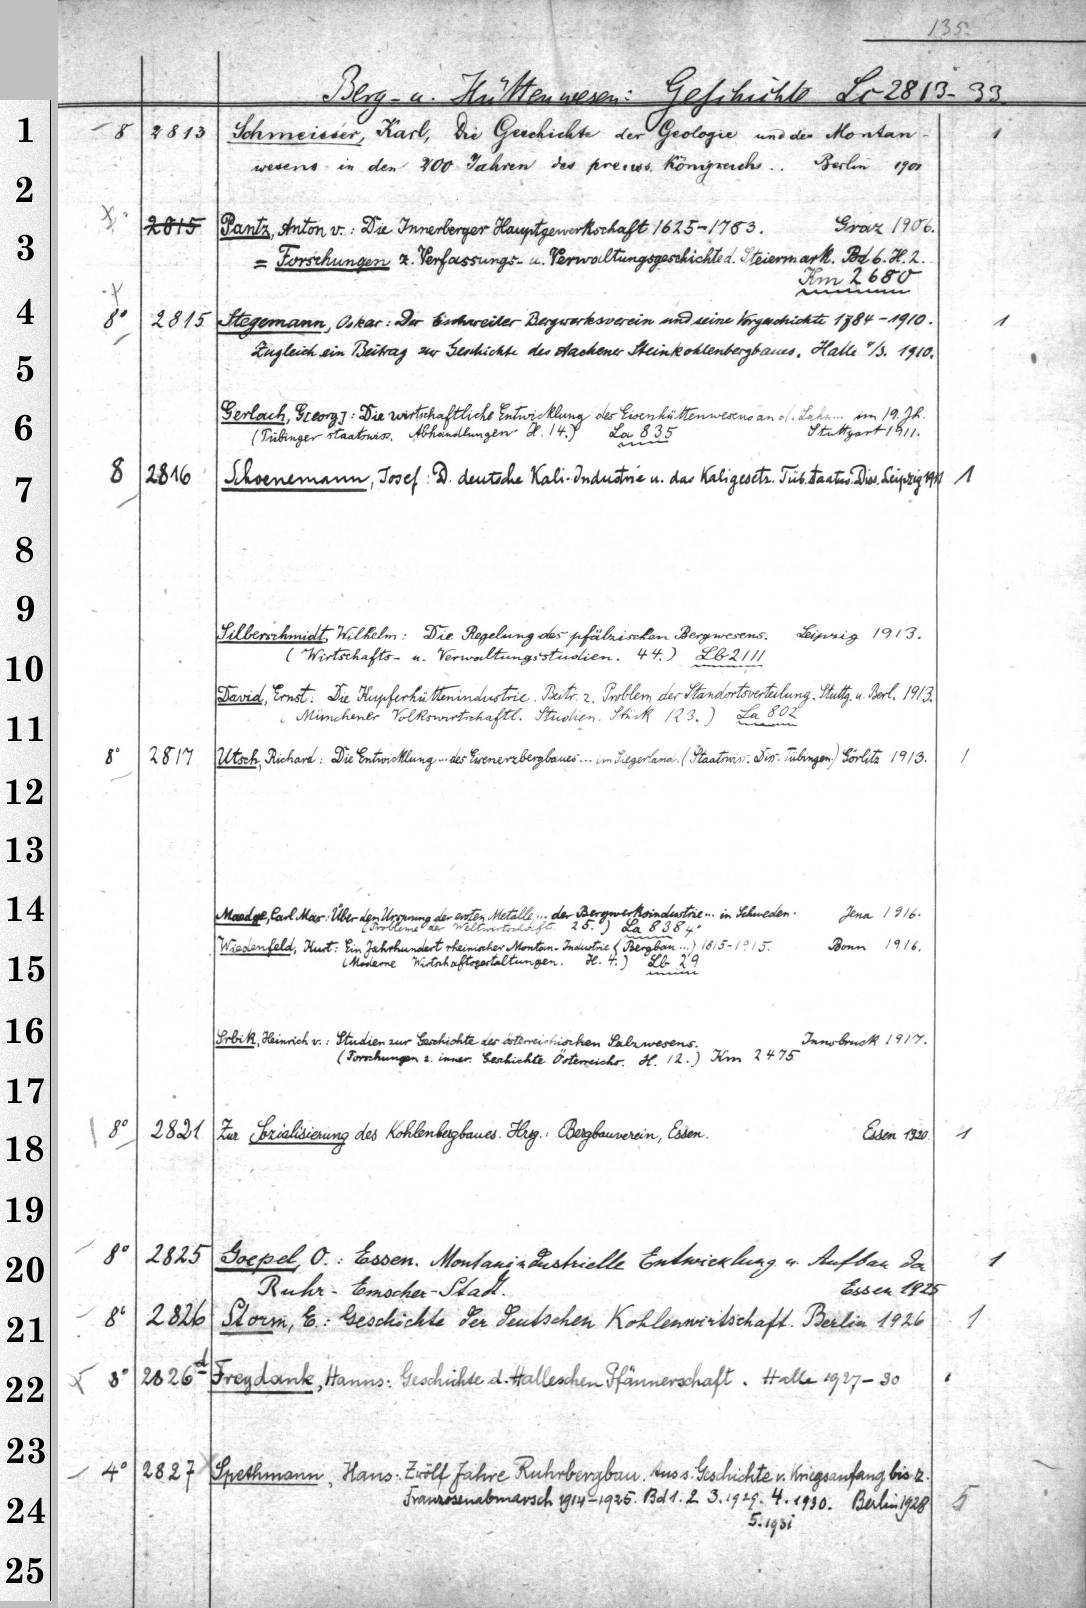 135.
Berg- u. Hüttenwesen: Geschichte Lc 2813-33
1 8 2813 Schmeisser, Karl, Die Geschichte der Geologie und des Montan- 1
wesens in den 200 Jahren des preuss. Königreichs.. Berlin 1901
2
2815 Pantz, Anton v.: Die Innerberger Hauptgewerkschaft 1625-1783. Graz 1906.
3 = Forschungen z. Verfassungs- u. Verwaltungsgeschichte d. Steiermark. Bd 6. H. 2.
Km 2680
4 8° 2815 Stegemann, Oskar: Der Eschweiler Bergwerksverein und seine Vorgeschichte 1784-1910. 1
5 Zugleich ein Beitrag zur Geschichte des Aachener Steinkohlenbergbaues. Halle a/S. 1910.
Gerlach, G[eorg]: Die wirtschaftliche Entwicklung des Eisenhüttenwesens an d. Lahn... im 19. Jh.
6 (Tübinger staatswiss. Abhandlungen H. 14.) La 835 Stuttgart 1911.
7 8 2816 Schoenemann, Josef: D. deutsche Kali-Industrie u. das Kaligesetz. Tüb. Staatsw. Diss. Leipzig 1911 1
8
9
Silberschmidt, Wilhelm: Die Regelung des pfälzischen Bergwesens. Leipzig 1913.
10 (Wirtschafts- u. Verwaltungsstudien. 44.) Lb 2111
David, Ernst: Die Kupferhüttenindustrie. Beitr. z. Problem der Standortsverteilung. Stuttg. u. Berl. 1913.
11 (Münchener Volkswirtschaftl. Studien. Stück 123.) La 802
8° 2817 Utsch, Richard: Die Entwicklung... des Eisenerzbergbaues... im Siegerland. (Staatswiss. Diss. Tübingen.) Görlitz 1913. 1
12
13
14 Maedge, Carl Max: Über den Ursprung der ersten Metalle... der Bergwerksindustrie... in Schweden. Jena 1916.
(Probleme der Weltwirtschaft. 25.) La 838 4°
Wiedenfeld, Kurt: Ein Jahrhundert rheinischer Montan-Industrie (Bergbau...) 1815-1915. Bonn 1916.
15 (Moderne Wirtschaftsgestaltungen. H. 4.) Lb 29
16 Srbik, Heinrich v.: Studien zur Geschichte des österreichischen Salzwesens. Innsbruck 1917.
(Forschungen z. inner. Geschichte Österreichs. H. 12.) Km 2475
17
18 8° 2821 Zur Sozialisierung des Kohlenbergbaues. Hrsg.: Bergbauverein, Essen. Essen 1920. 1
19
20 8° 2825 Goepel, O.: Essen. Montanindustrielle Entwicklung u. Aufbau der 1
Ruhr-Emscher-Stadt. Essen 1925
21 8° 2826 Storm, E.: Geschichte der deutschen Kohlenwirtschaft. Berlin 1926 1
22 8° 2826 d Freydank, Hanns: Geschichte d. Halleschen Pfännerschaft. Halle 1927-30
23
4° 2827 Spethmann, Hans: Zwölf Jahre Ruhrbergbau. Aus s. Geschichte v. Kriegsanfang bis z.
24 Franzosenabmarsch 1914-1925. Bd 1. 2. 3. 1929. 4. 1930. Berlin 1928 5
5. 1931
25